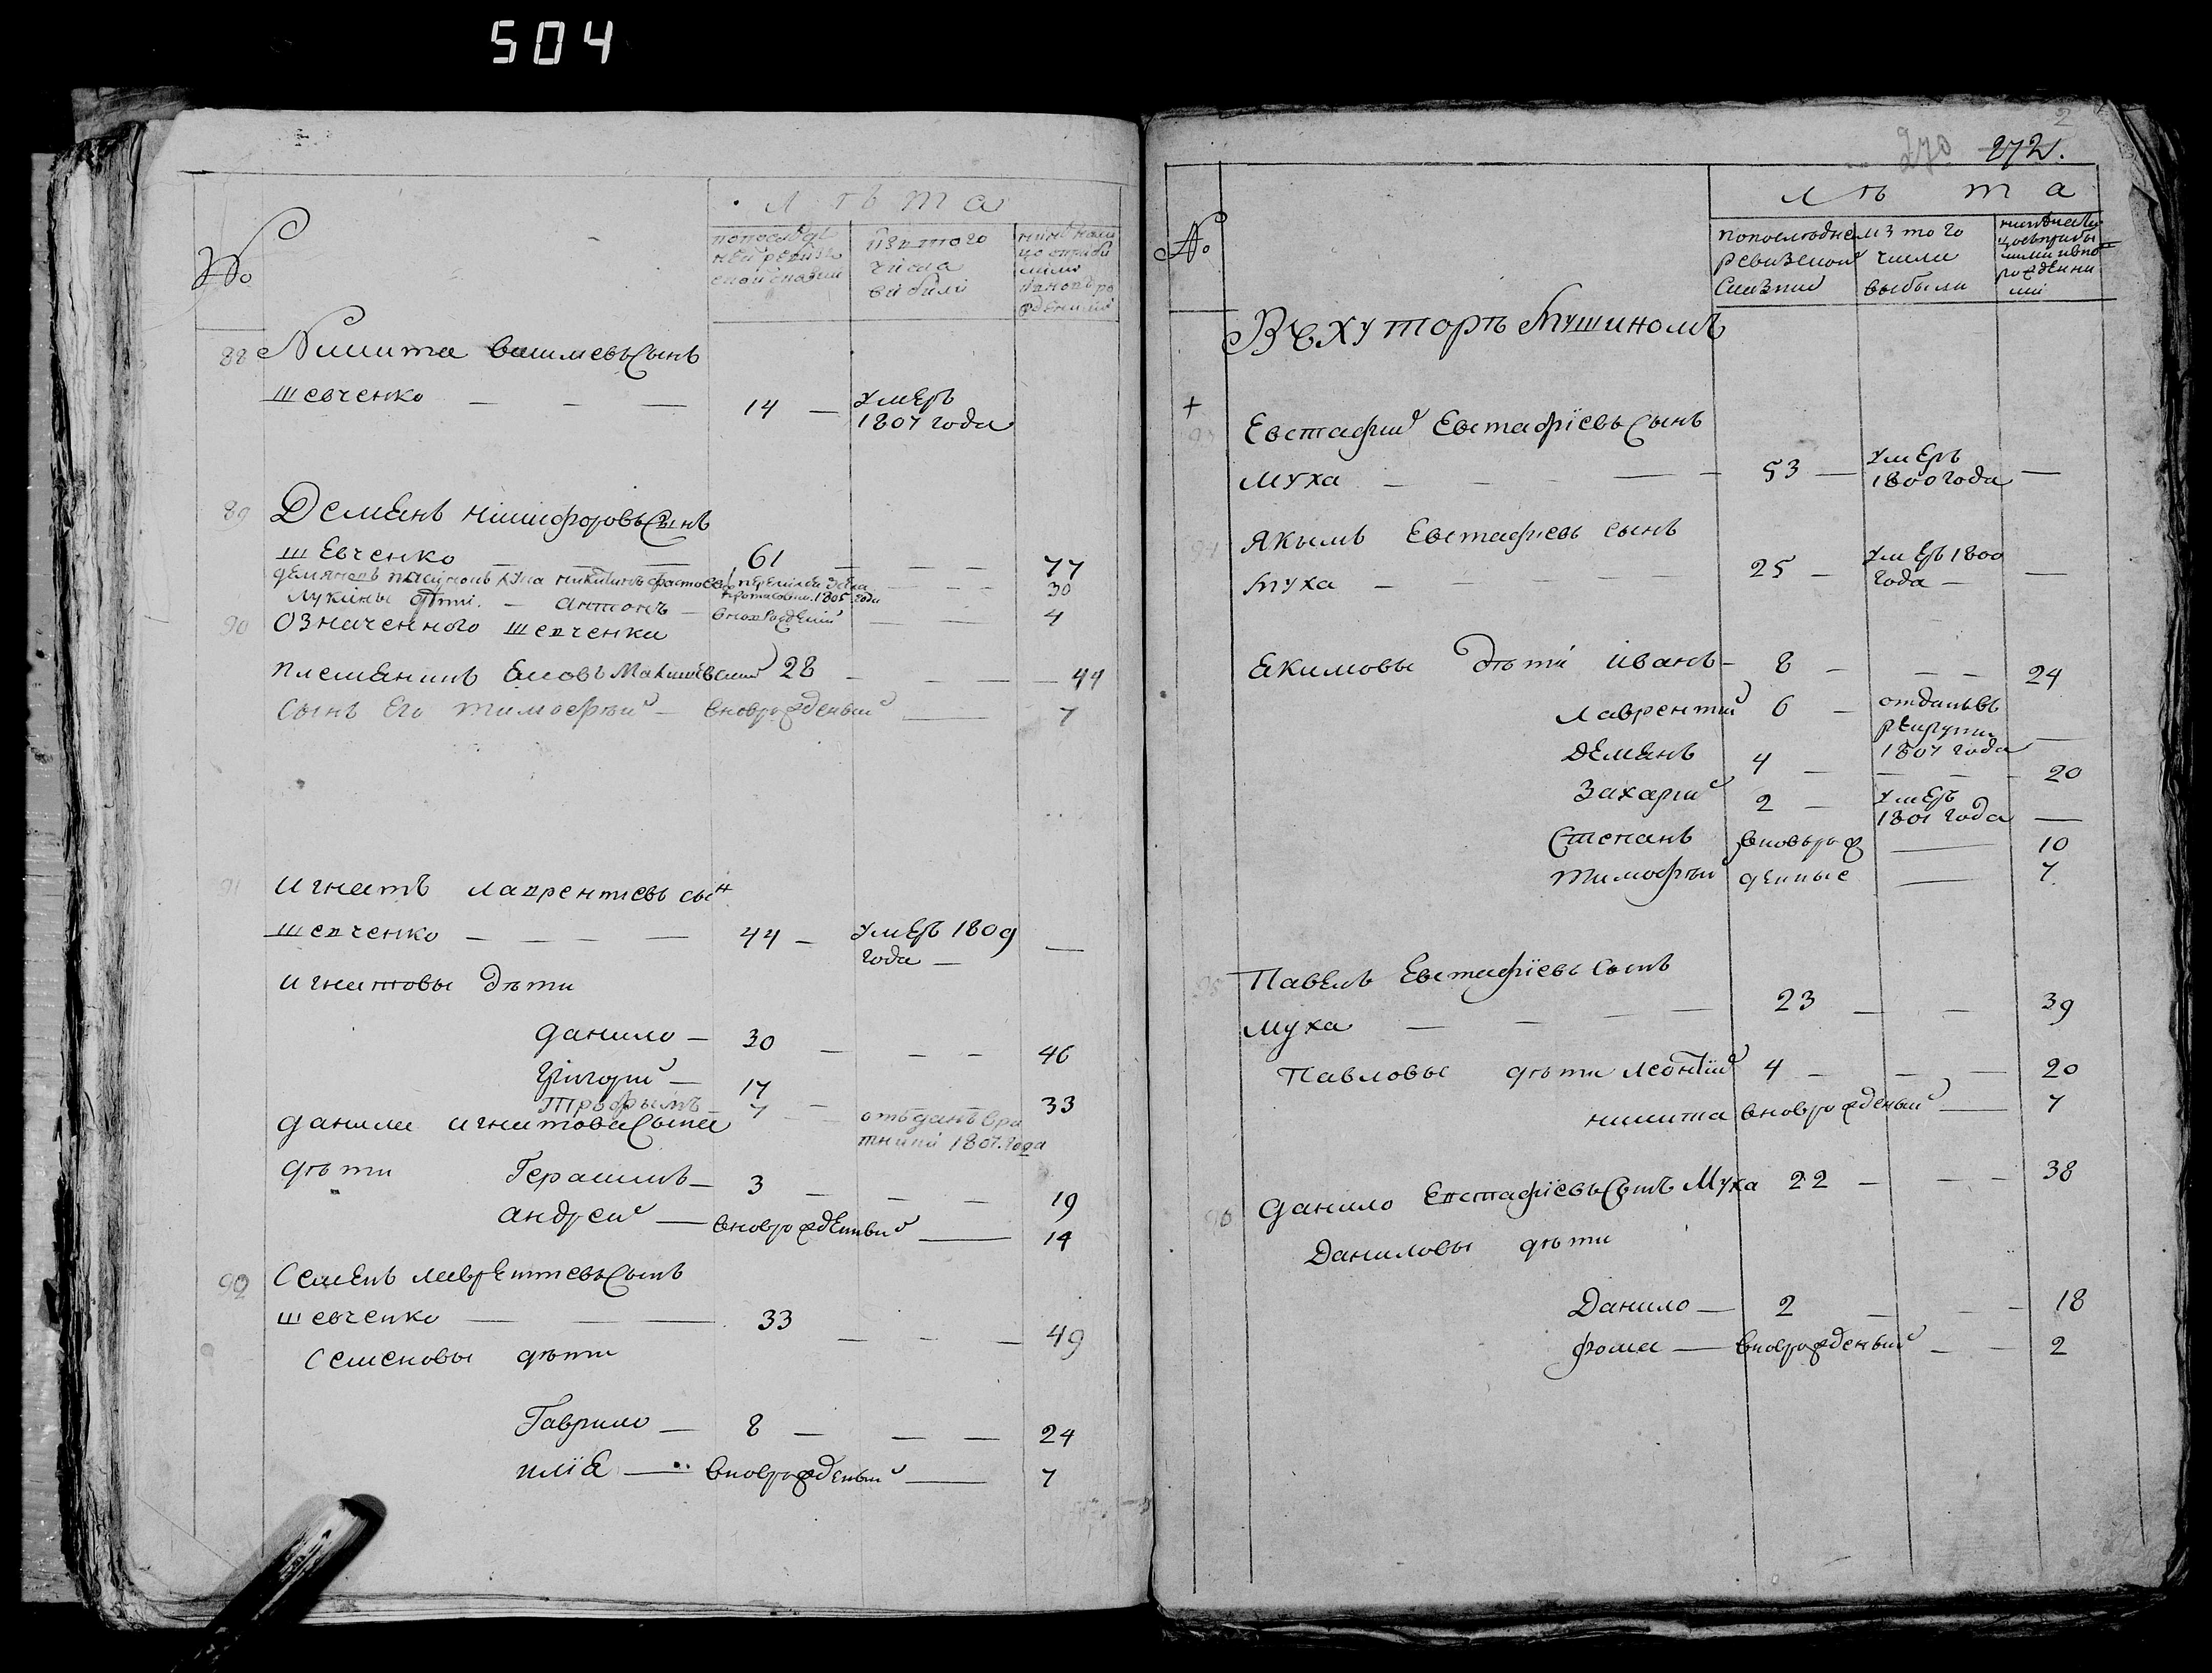 504
Лѣта
№
попослѣд
ней ревиз
ской сказки
изъ того
числа
выбили
88 Никита васильевъ Сынъ
шевченко — — — 14 — умеръ
1807 года
89 Деменъ никифоровъ Сынъ
шевченко — — 61 — — — 77
30
Лукины дѣти. — антонъ — вноврожденый — — 4
90 Означенного шевченка
племенникъ 28 — — — 44
Сынъ Его тимофѣй — вноврожденый — 7
91 игнатъ лаврентиевъ сын
шевченко — — — — 44 — умеръ 1809
года — —
игнатовы дѣти
данило — 30 — — — 46
Григорий — 17 — 33
Трофымъ — 7 — отъданъ вра
тники 1807. года
данила игнатова Сына
дѣти Герасимъ — 3 — — — 19
андрей — вноврожденый — 14
92 Семенъ лаврентиевъ Сынъ
шевченко — — — 33 — — — 49
Семеновы дѣти
Гаврило — 8 — — — 24
илїя — вноврожденый — 7
270 272.
Лѣта
№
попослѣдней
ревизской
Сказки
из того
числа
выбыли
Въ Хуторѣ Мушиномъ
+
93 Евстафий Евстафїевъ Сынъ
муха — — — — 53 — умеръ
1800 года —
94 Якымъ Евстафиевъ сынъ
муха — — — — 25 — умеръ 1800
года — —
Екимовы дѣти иванъ — 8 — — — 24
лаврентий 6 — отданъ въ
рекруты
1807 года —
деменъ 4 — — — 20
Захарий 2 — умеръ
1801 года —
Степанъ вноврож — 10
тимофѣй денные — 7.
95 Павелъ Евстафїевъ Сынъ
муха — — — — 23 — — 39
Павловы дѣти леонтїй 4 — — — 20
никита вноврожденый — 7
96 данило Евстафїевъ Сынъ Муха 22 — — — 38
Даниловы дѣти
Данило — 2 — — — 18
фома — вноврожденый — — 2